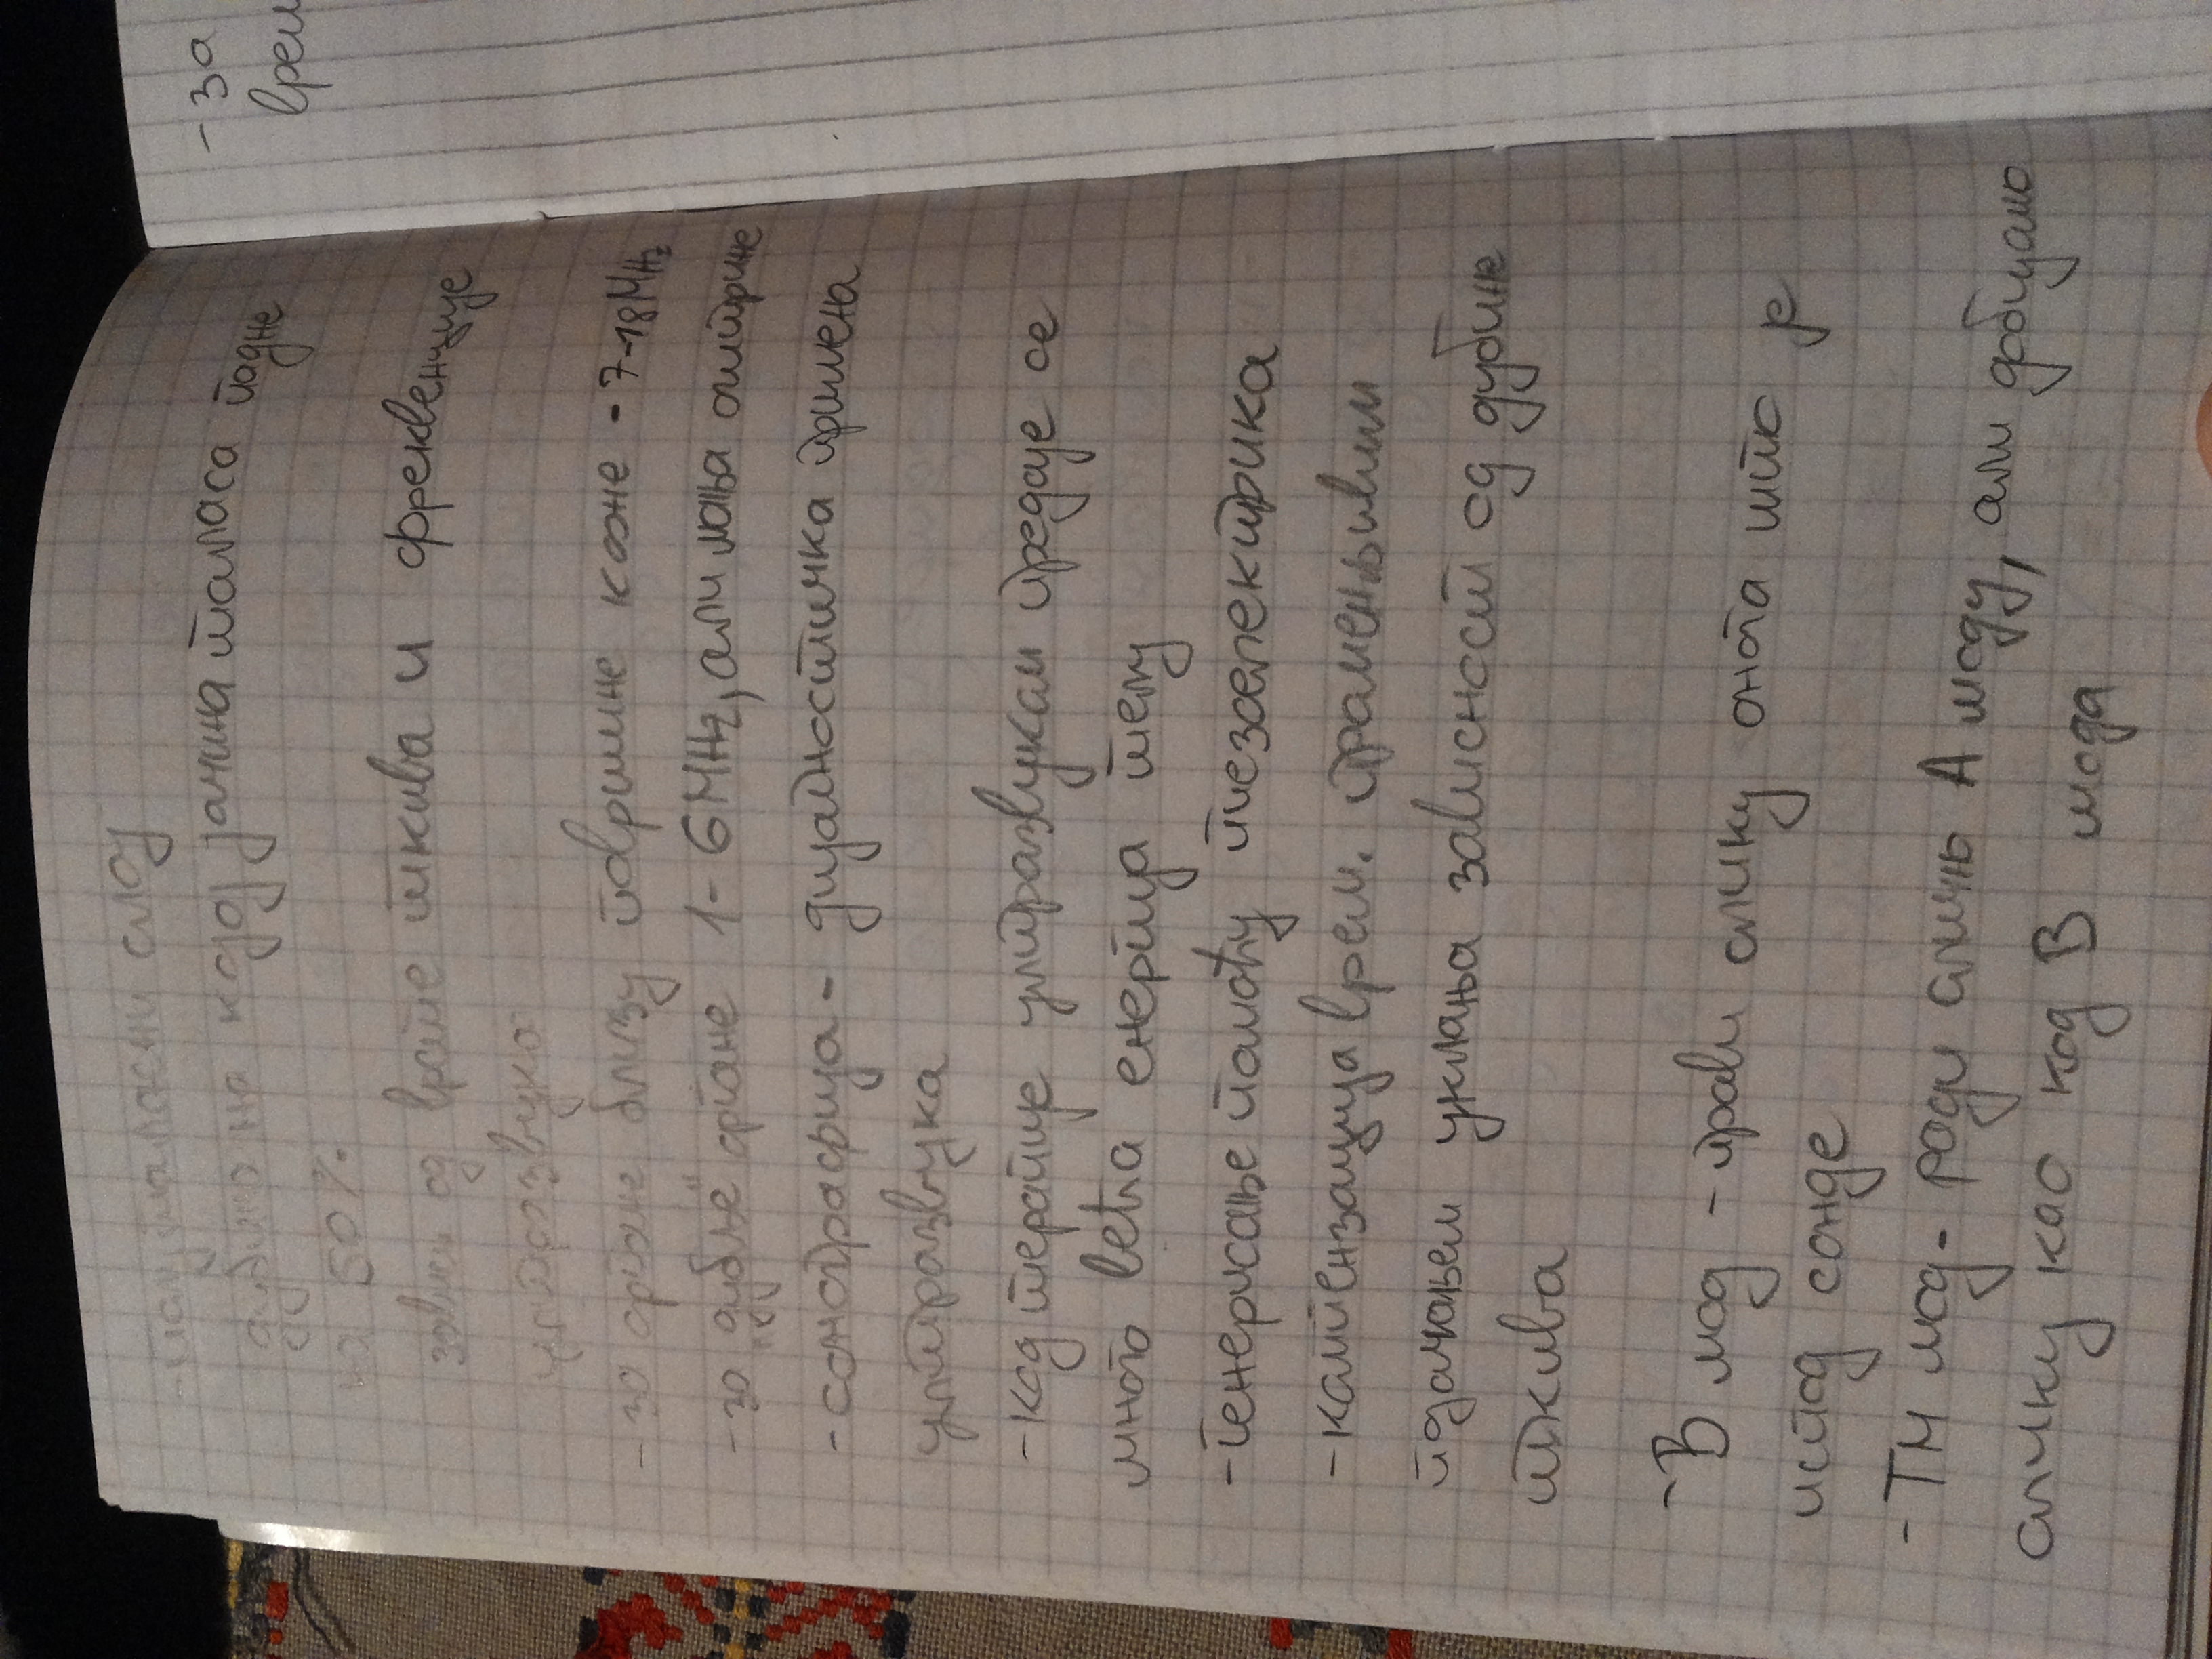 -полуталасни слој
дубина на којој јачина таласа падне
на 50%.
зависи од врсте ткива и фреквенције
ултразвука
-за органе близу површине коже - 7-18MHz
-за „дубље" органе 1-6MHz, али мања оштрине
-сонографија - дијагностичка примена
ултразвука
-код терапије ултразвуком предаје се
много већа енергија телу
-генерисање помоћу пиезоелектрика
-компензација врем. променљивим
појачањем уклања зависност од дубине
ткива
-B мод -прави слику онога што је
испод сонде
-TM мод- ради слично A моду, али добијамо
слику као код B мода
-за
врем